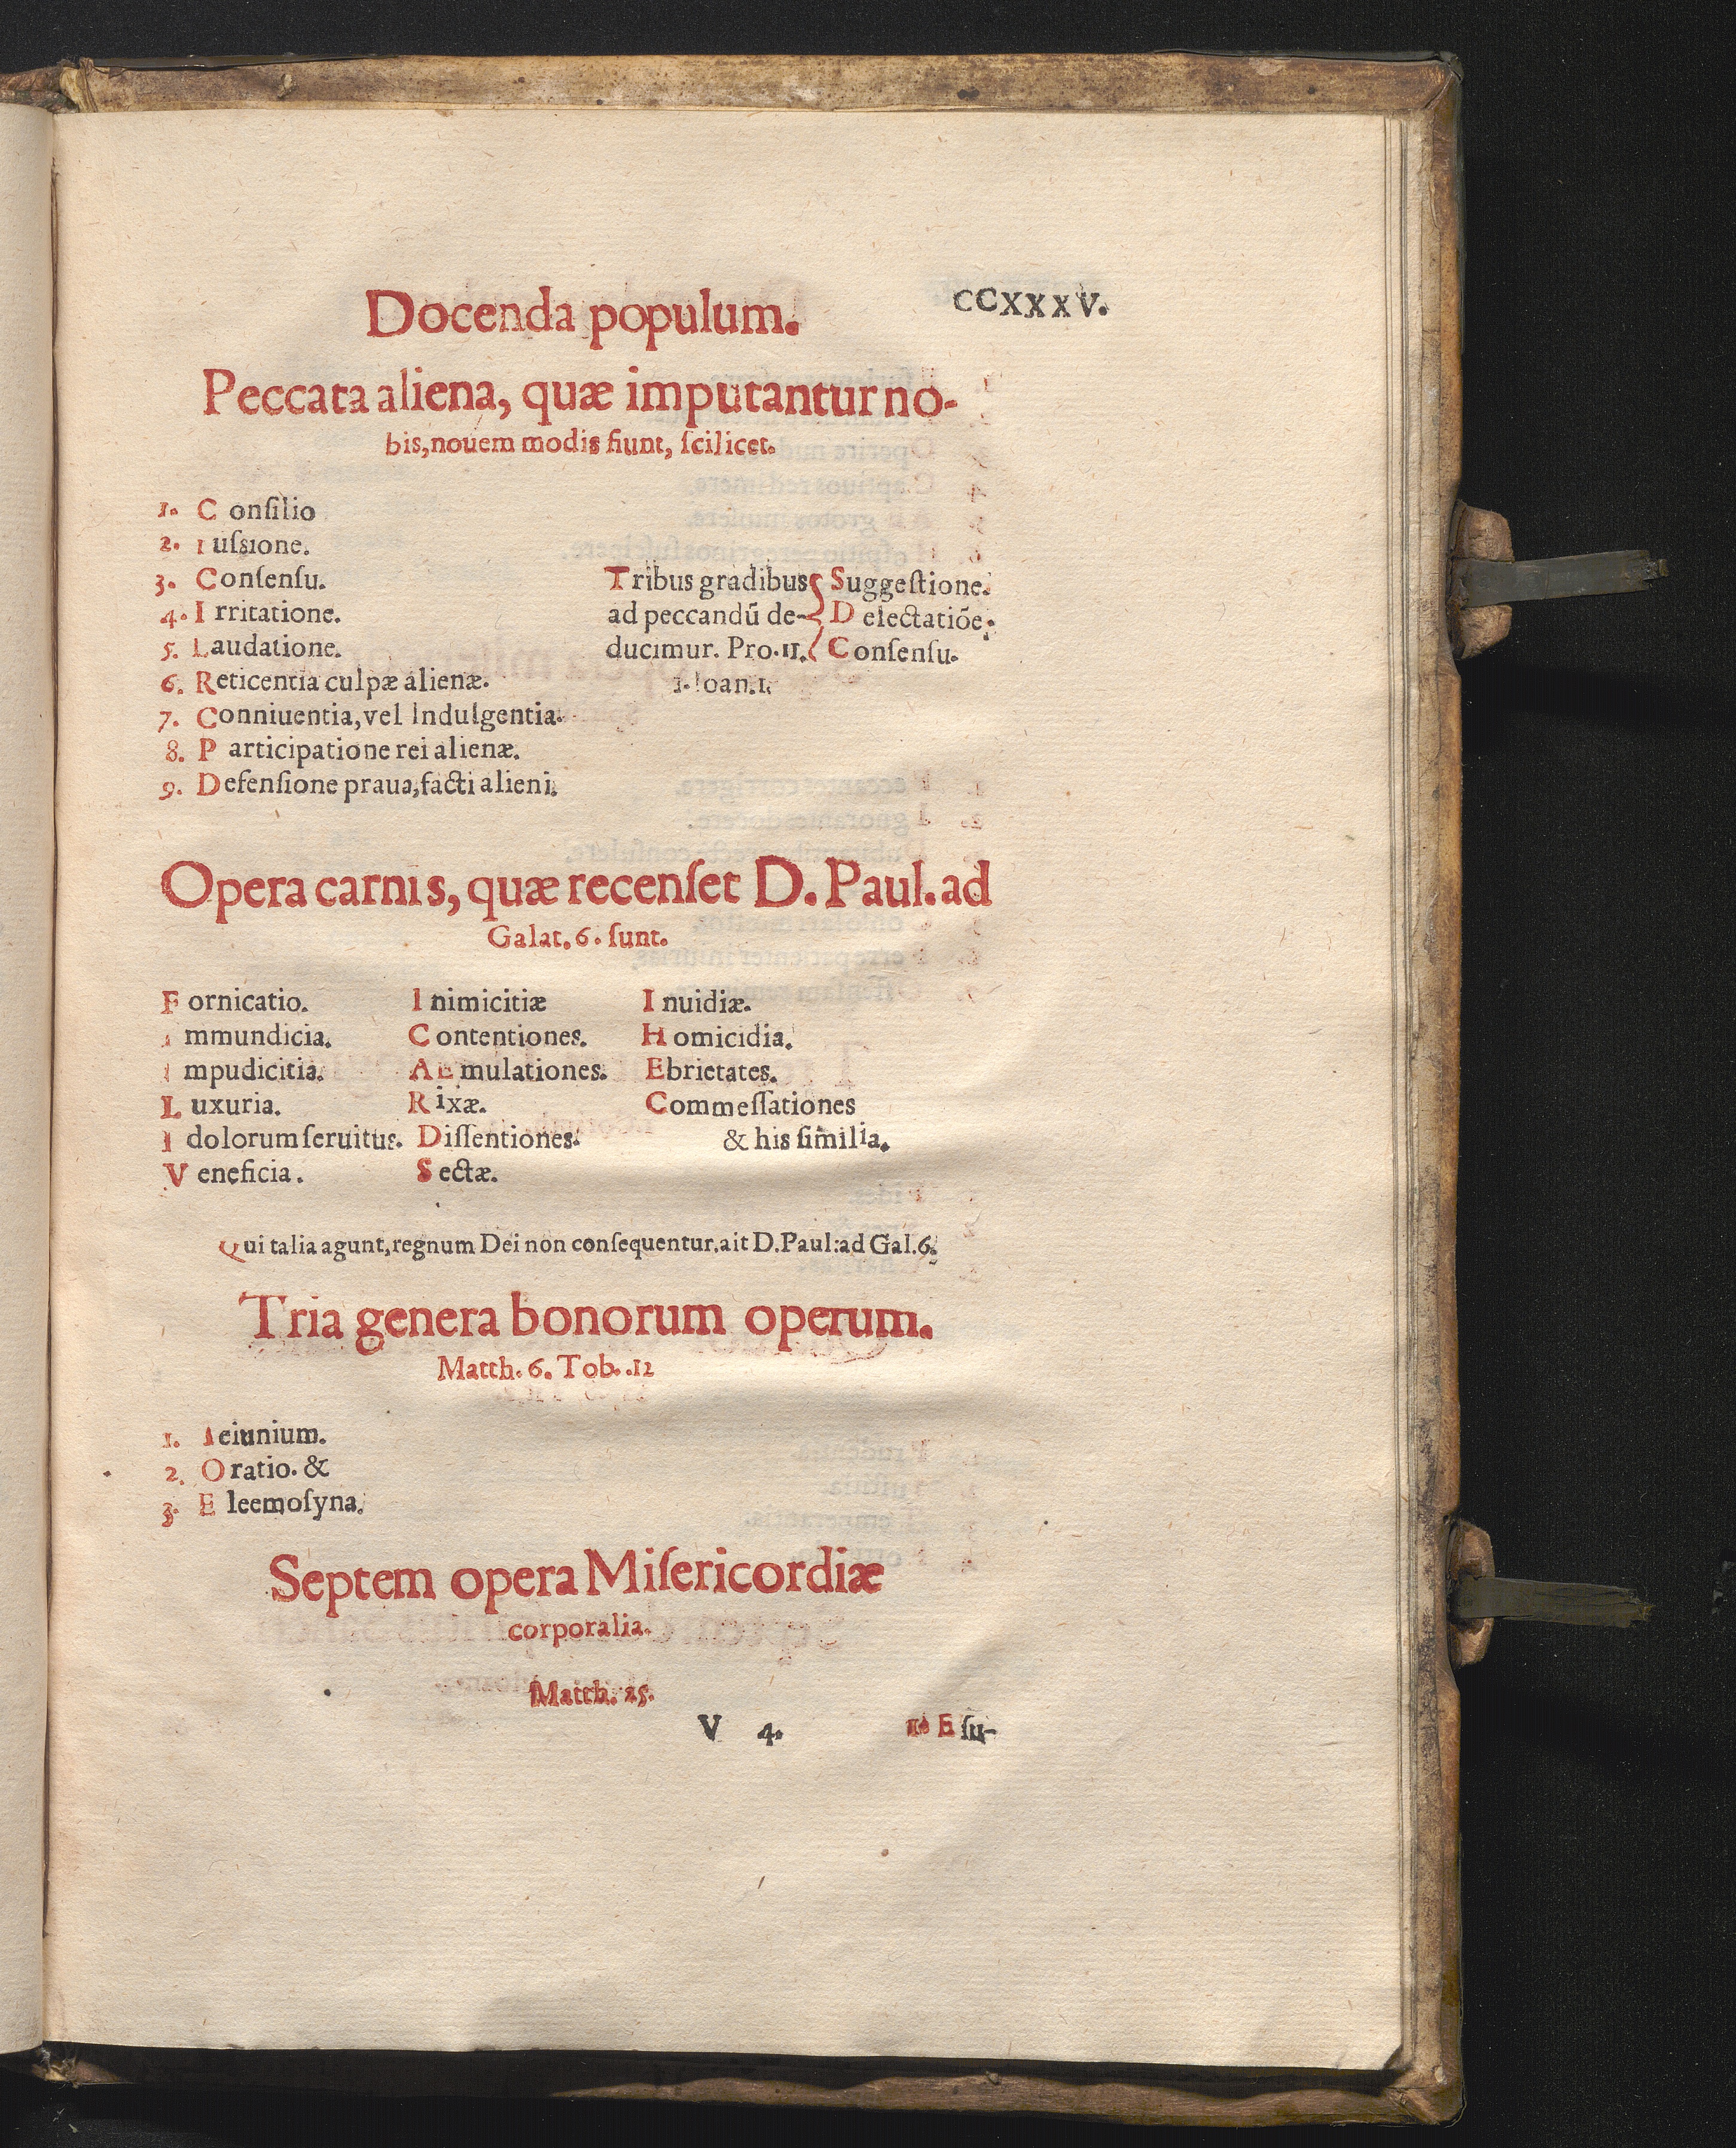 Docenda populum. CCXXXV.
Peccata aliena, quæ imputantur no-
bis, nouem modis fiunt, ſcilicet.
1. Conſilio
2. iuſsione.
3. Conſenſu.
4. Irritatione.
5. Laudatione.
6. Reticentia culpæ alienæ.
7. Conniuentia, vel Indulgentia.
8. Participatione rei alienæ.
9. Defenſione praua, facti alieni.
Tribus gradibus { Suggeſtione.
ad peccandū de- { Delectatiōe.
ducimur. Pro. 11. { Conſenſu.
1. Ioan. 1.
Opera carnis, quæ recenſet D. Paul. ad
Galat. 6. ſunt.
Fornicatio.
Immundicia.
Impudicitia.
Luxuria.
Idolorum ſeruitus.
Veneficia.
Inimicitiæ
Contentiones.
AEmulationes.
Rixæ.
Diſſentiones.
Sectæ.
Inuidiæ.
Homicidia.
Ebrietates.
Commeſſationes
& his ſimilia.
Qui talia agunt, regnum Dei non conſequentur. ait D. Paul: ad Gal. 6.
Tria genera bonorum operum.
Matth. 6. Tob. .12
1. Ieiunium.
2. Oratio. &
3. Eleemoſyna.
Septem opera Miſericordiæ
corporalia.
Matth. 25.
V 4. 1. Eſu-